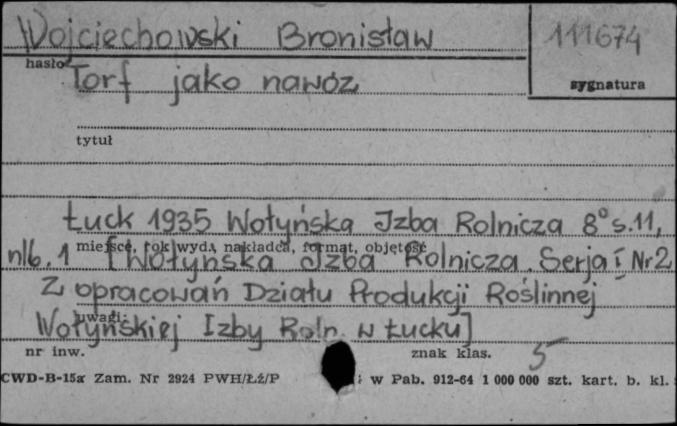 Wojciechowski Bronisław 111674
hasło sygnatura
Torf jako nawóz
tytuł
Łuck 1935 Wołyńska Izba Rolnicza 8° s. 11,
miejsce, rok wyd., nakładca, format, objętość
nlb. 1 [Wołyńska Izba Rolnicza. Serja I Nr 2
Z opracowań Działu Produkcji Roślinnej
uwagi:
Wołyńskiej Izby Roln. w Łucku]
nr inw. znak klas. 5
CWD-B-15a Zam. Nr 2924 PWH/Łź/P w Pab. 912-64 1 000 000 szt. kart. b. kl.